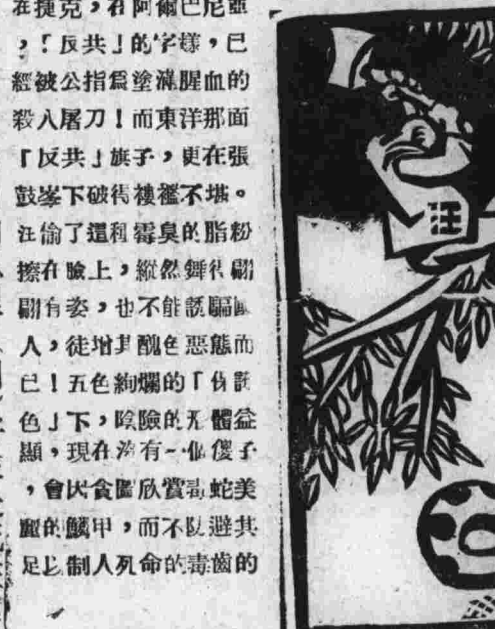 在捷克，在阿爾巴尼亞
，「反共」的字樣，已
經被公指爲塗滿腥血的
殺人屠刀！而東洋那面
「反共」旗子，更在張
鼓峯下破得襤褸不堪。
汪偷了這種霉臭的脂粉
擦在臉上，縱然舞得翩
翩有姿，也不能誘騙
人，徒增其醜色惡態而
已！五色絢爛的「偽
色」下，陰險的形體益
顯，現在沒有一個傻子
，會因貪圖欣賞毒蛇美
麗的鱗甲，而不趨避其
足以制人死命的毒齒的
汪